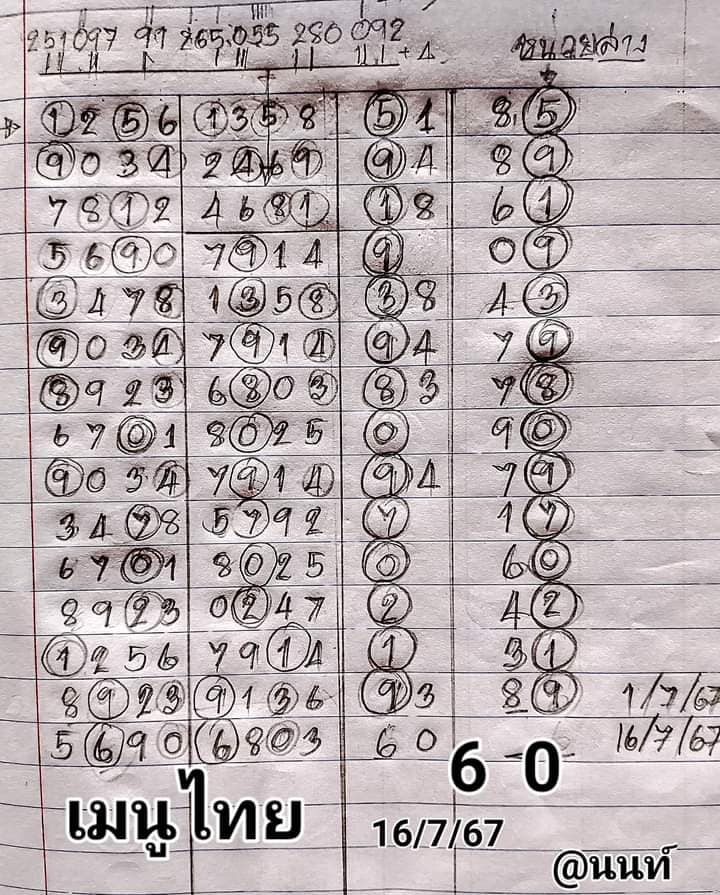 251097 97 265,055 280 092
+ 4 หน่วยล่าง
1256 1358 51 8.5
9034 2469 94 89
7812 4681 18 61
5690 7914 9 09
3478 1358 38 43
9034 7914 94 79
8923 6803 83 78
6701 8025 0 90
9034 7914 94 79
3478 5792 7 17
6701 8025 0 60
8923 0247 2 42
1256 7914 1 31
8923 9136 93 89 1/7/67
5690 6803 60 16/7/67
6 0
เมนูไทย 16/7/67
@นนท์